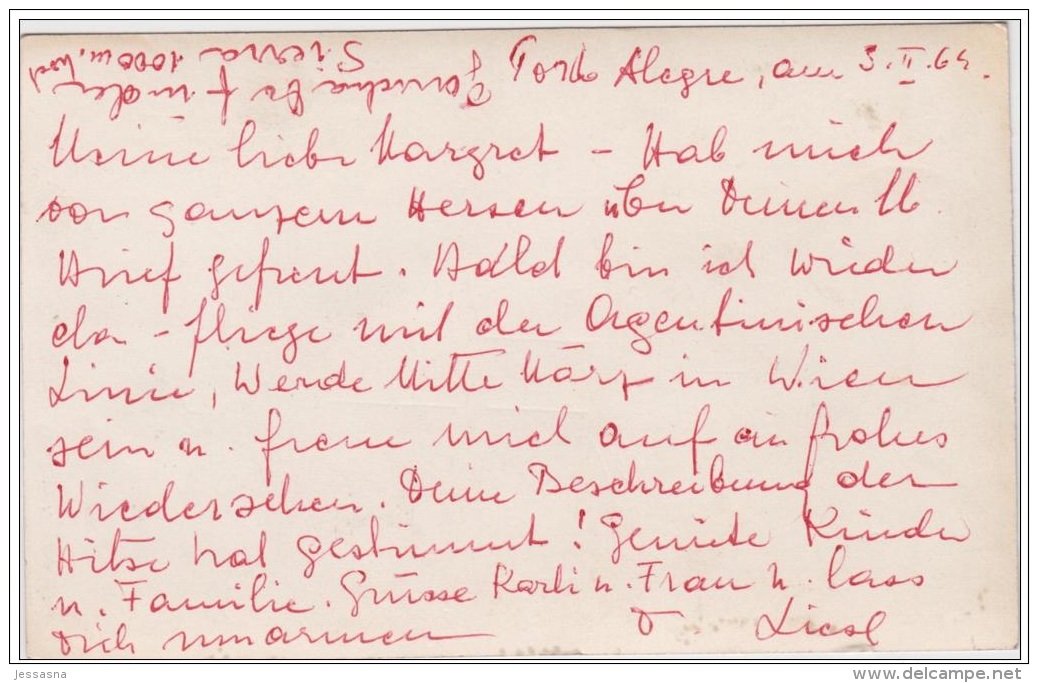 Porto Alegre, am 3.II.64.
Sierra 1000 m. hoch
Meine liebe Margret – Hab mich
von ganzem Herzen über Deinen lb.
Brief gefreut. Bald bin ich wieder
da – fliege mit der Argentinischen
Linie, Werde Mitte März in Wien
sein u. freue mich auf ein frohes
Wiedersehen. Deine Beschreibung der
Hitze hat gestimmt! Geniesse Kinder
u. Familie. Grüsse Karli u. Frau u. lass
Dich umarmen D. Liesl
jessasna
delcampe.net